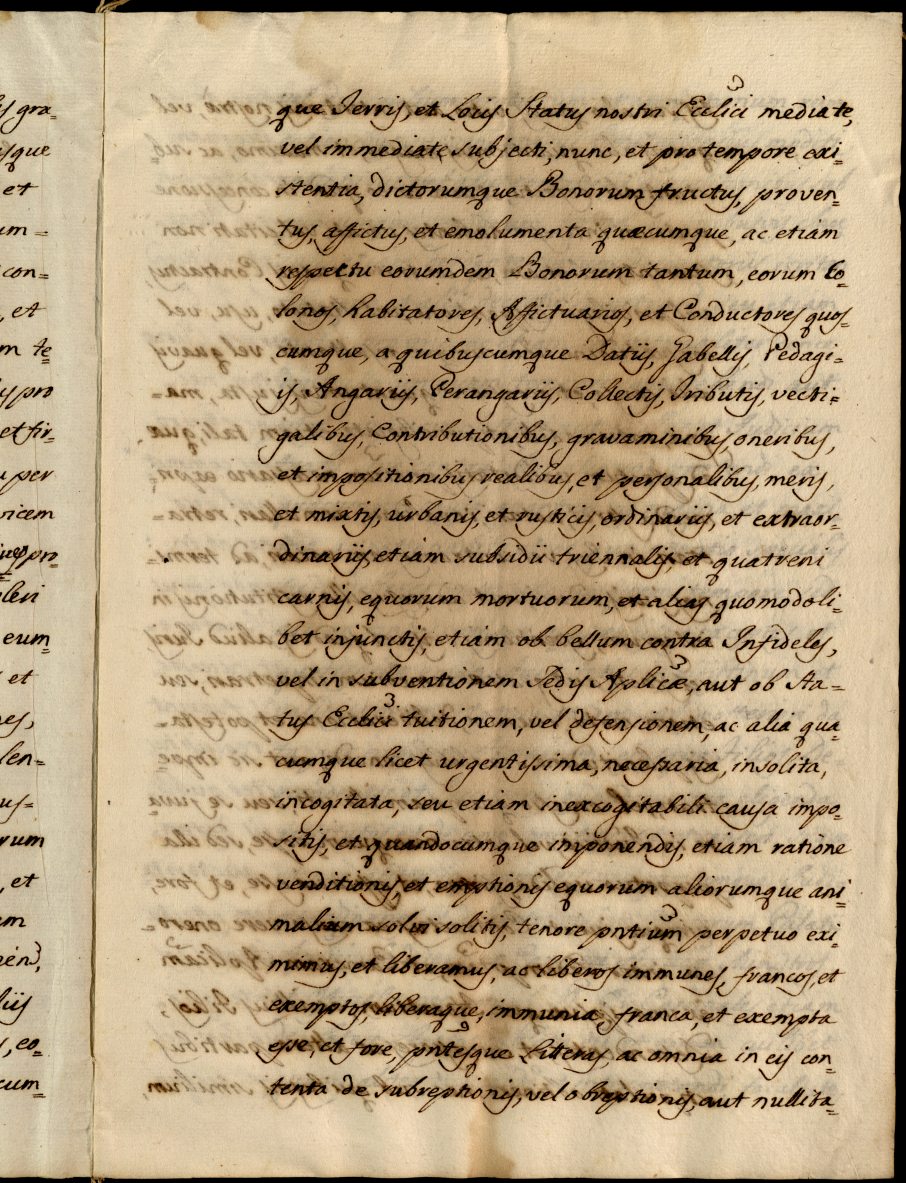 s gra=
sque
et
um=
con=
, et
m te=
s pro
et fir=
u per
vicem
pro=
leri
eum=
s et
nes,
len=
us=
rum
, et
em
liis
s, eo=
cum=
que Terris, et Locis Status nostri Ecclici mediate,
vel immediate subjecti, nunc, et pro tempore exi=
stentia, dictorumque Bonorum fructus, proven=
tus, affictus, et emolumenta quæcumque, ac etiam
respectu eorumdem Bonorum tantum, eorum Co=
lonos, habitatores, Affictuarios, et Conductores quos=
cumque, a quibuscumque Datiis, Gabellis, Pedagi=
is, Angariis, Perangariis, Collectis, Tributis, vecti=
galibus, Contributionibus, gravaminibus, oneribus,
et impositionibus realibus, et personalibus, meris,
et mixtis, urbanis, et rusticis, ordinariis, et extraor=
dinariis, etiam subsidii triennalis, et quatreni
carnis, equorum mortuorum, et alias quomodoli=
bet injunctis, etiam ob bellum contra Infideles,
vel in subventionem Sedis Aplicæ, aut ob Sta=
tus Ecclici tuitionem, vel defensionem, ac alia qua=
cumque licet urgentissima, necessaria, insolita,
incogitata, seu etiam inexcogitabili causa impo=
sitis, et quandocumque imponendis, etiam ratione
venditionis, et emptionis equorum aliorumque ani=
malium solvi solitis, tenore pntium perpetuo exi=
mimus, et liberamus, ac liberos immunes, francos, et
exemptos, liberaque, immunia, franca, et exempta
esse, et fore, pntesque Litteras, ac omnia in eis con=
tenta de subreptionis, vel obreptionis, aut nullita=